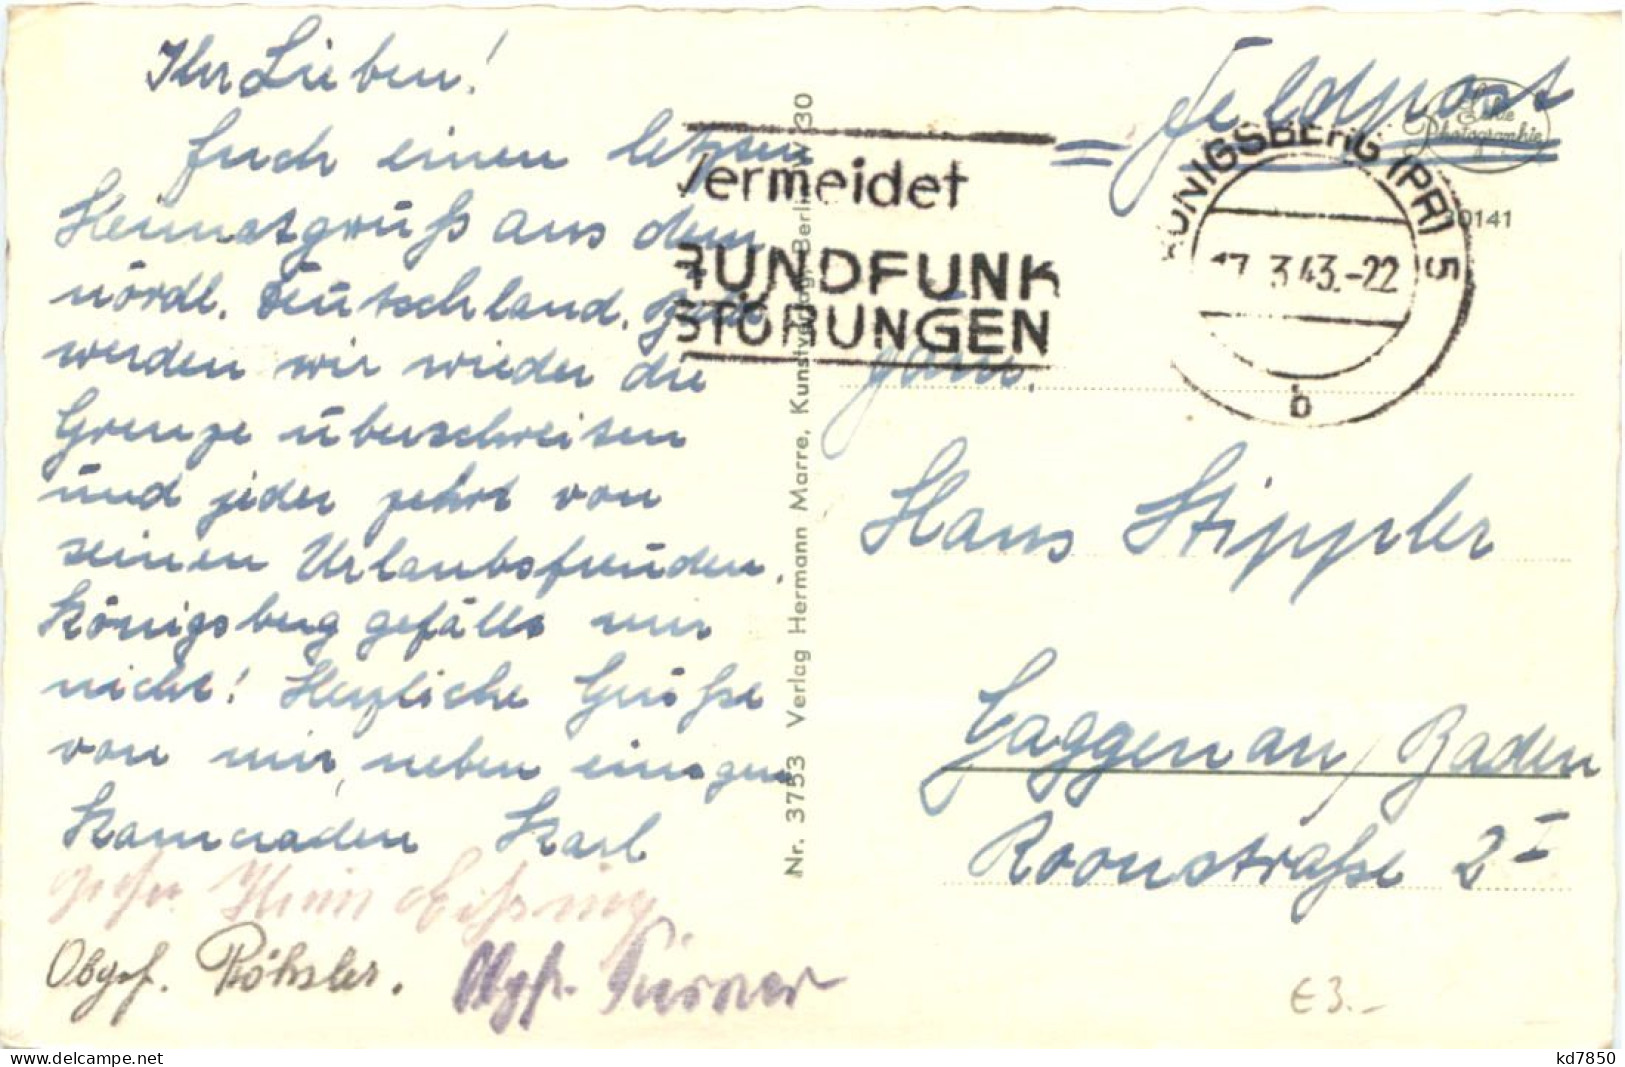 Ihr Lieben!
Euch einen letzten
Heimatgruß aus dem
nördl. Deutschland.
werden wir wieder die
Grenze überschreiten
und jeder zehrt von
seinen Urlaubsfreuden.
Königsberg gefällt mir
nicht! Herzliche Grüße
von mir, neben einigen
Kameraden Karl
Obgef. Röhsler.
Obgfr.
Nr. 3753 Verlag Hermann Marre, Kunstverlag, Berlin W 30
Feldpost
Echte
Photographie
30141
Vermeidet
RUNDFUNK
STÖRUNGEN
KÖNIGSBERG (PR) 5
17.3.43.-22
b
Fam.
Hans Stippler
Gaggenau/Baden
Roonstraße 2 I
€ 3.-
delcampe.net
kd7850